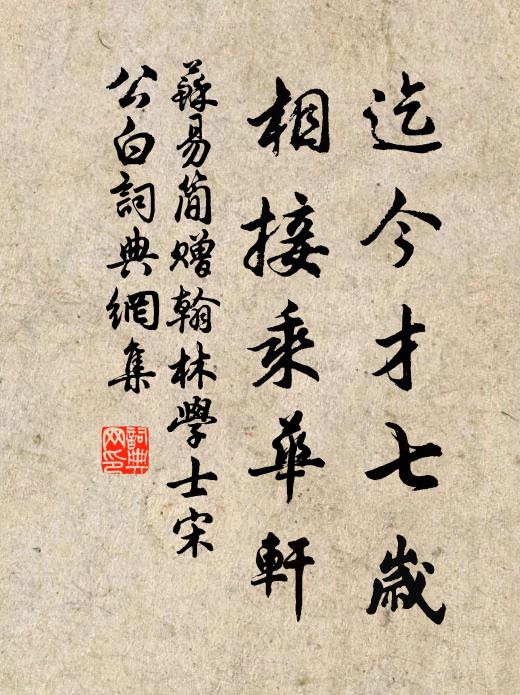 迄今才七歲
相接乘華軒
蘇易簡贈翰林學士宋
公白詞典網集
詞典网印